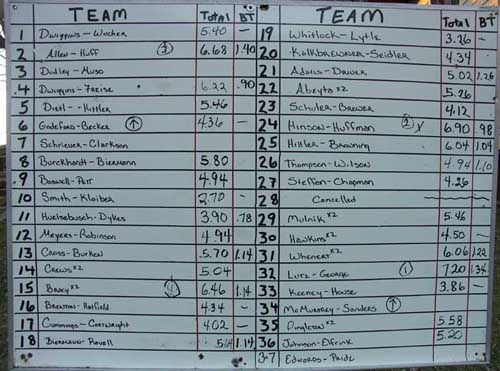 TEAM Total BT
1 Dwiggins-Wucher 5.40 —
2 Allen-Huff 3 6.68 1.40
3 Dudley-Muso
4 Dwiggins-Freise 6.22 .90
5 Dietl-Hittler 5.46
6 Godeford-Becker ↑ 4.36 —
7 Schriever-Clarkson
8 Burckhardt-Biermann 5.80
9 Boswell-Pett 4.94
10 Smith-Kloiber 2.70 —
11 Huelsebusch-Dykes 3.90 .78
12 Meyers-Robinson 4.94
13 Cross-Burken 5.70 1.14
14 Crews x2 5.04
15 Baxey x2 4 6.46 1.14
16 Brenton-Hatfield 4.34 —
17 Cummings-Cartwright 4.02 —
18 Biermann-Powell 5.64 1.14
TEAM Total BT
19 Whitlock-Lytle 3.26 —
20 Kalkbrenner-Seidler 4.34
21 Adams-Driver 5.02 1.26
22 Abeyta x2 5.26
23 Schuler-Brewer 4.12
24 Hinson-Huffman 2 x 6.90 .98
25 Hittler-Browning 6.04 1.04
26 Thompson-Wilson 4.94 1.10
27 Steffon-Chapman 4.26
28 Cancelled
29 Mulnik x2 5.46
30 Hawkins x2 4.50 —
31 Whenert x2 6.06 1.22
32 Lutz-George 1 7.20 1.34
33 Keeney-House 3.86 —
34 McMurtrey-Sanders ↑
35 Dingleton x2 5.58
36 Johnson-Elfrink 5.20
37 Edwards-Pride